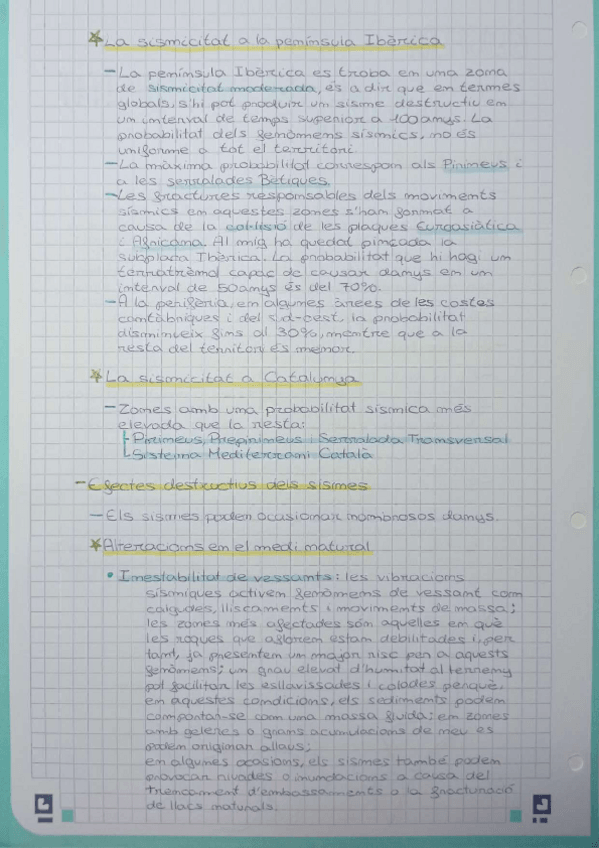 La sismicitat a la península Ibèrica
- La península Ibèrica es troba en una zona
de sismicitat moderada, és a dir que en termes
globals, s'hi pot produir un sisme destructiu en
un interval de temps superior a 100 anys. La
probabilitat dels fenòmens sísmics, no és
uniforme a tot el territori
- La màxima probabilitat correspon als Pirineus i
a les serralades Bètiques.
- Les fractures responsables dels moviments
sísmics en aquestes zones s'han format a
causa de la col·lisió de les plaques Euroasiàtica
i Africana. Al mig ha quedat pinçada la
subplaca Ibèrica. La probabilitat que hi hagi un
terratrèmol capaç de causar danys en un
interval de 50 anys és del 70%.
- A la perifèria, en algunes àrees de les costes
cantàbriques i del sud-oest, la probabilitat
disminueix fins al 30%, mentre que a la
resta del territori és menor.
La sismicitat a Catalunya
- Zones amb una probabilitat sísmica més
elevada que la resta:
Pirineus, Prepirineus i Serralada Transversal
Sistema Mediterrani Català
- Efectes destructius dels sismes
- Els sismes poden ocasionar nombrosos danys.
Alteracions en el medi natural
• Inestabilitat de vessants: les vibracions
sísmiques activen fenòmens de vessant com
caigudes, lliscaments i moviments de massa;
les zones més afectades són aquelles en què
les roques que afloren estan debilitades i, per
tant, ja presenten un major risc per a aquests
fenòmens; un grau elevat d'humitat al terreny
pot facilitar les esllavissades i colades perquè,
en aquestes condicions, els sediments poden
comportar-se com una massa fluida; en zones
amb geleres o grans acumulacions de neu es
poden originar allaus;
en algunes ocasions, els sismes també poden
provocar riuades o inundacions a causa del
trencament d'embassaments o la fracturació
de llacs naturals.